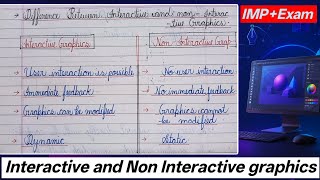 → Difference Between Interactive and non-Interac
-tive Graphics.
Interactive Graphics
Non Interactive Grap
→ User interaction is possible
→ No user interaction
→ Immediate feedback
→ No immediate feedback
→ Graphics can be modified
→ Graphics cannot
be modified
→ Dynamic
→ Static
IMP+Exam
Interactive and Non Interactive graphics